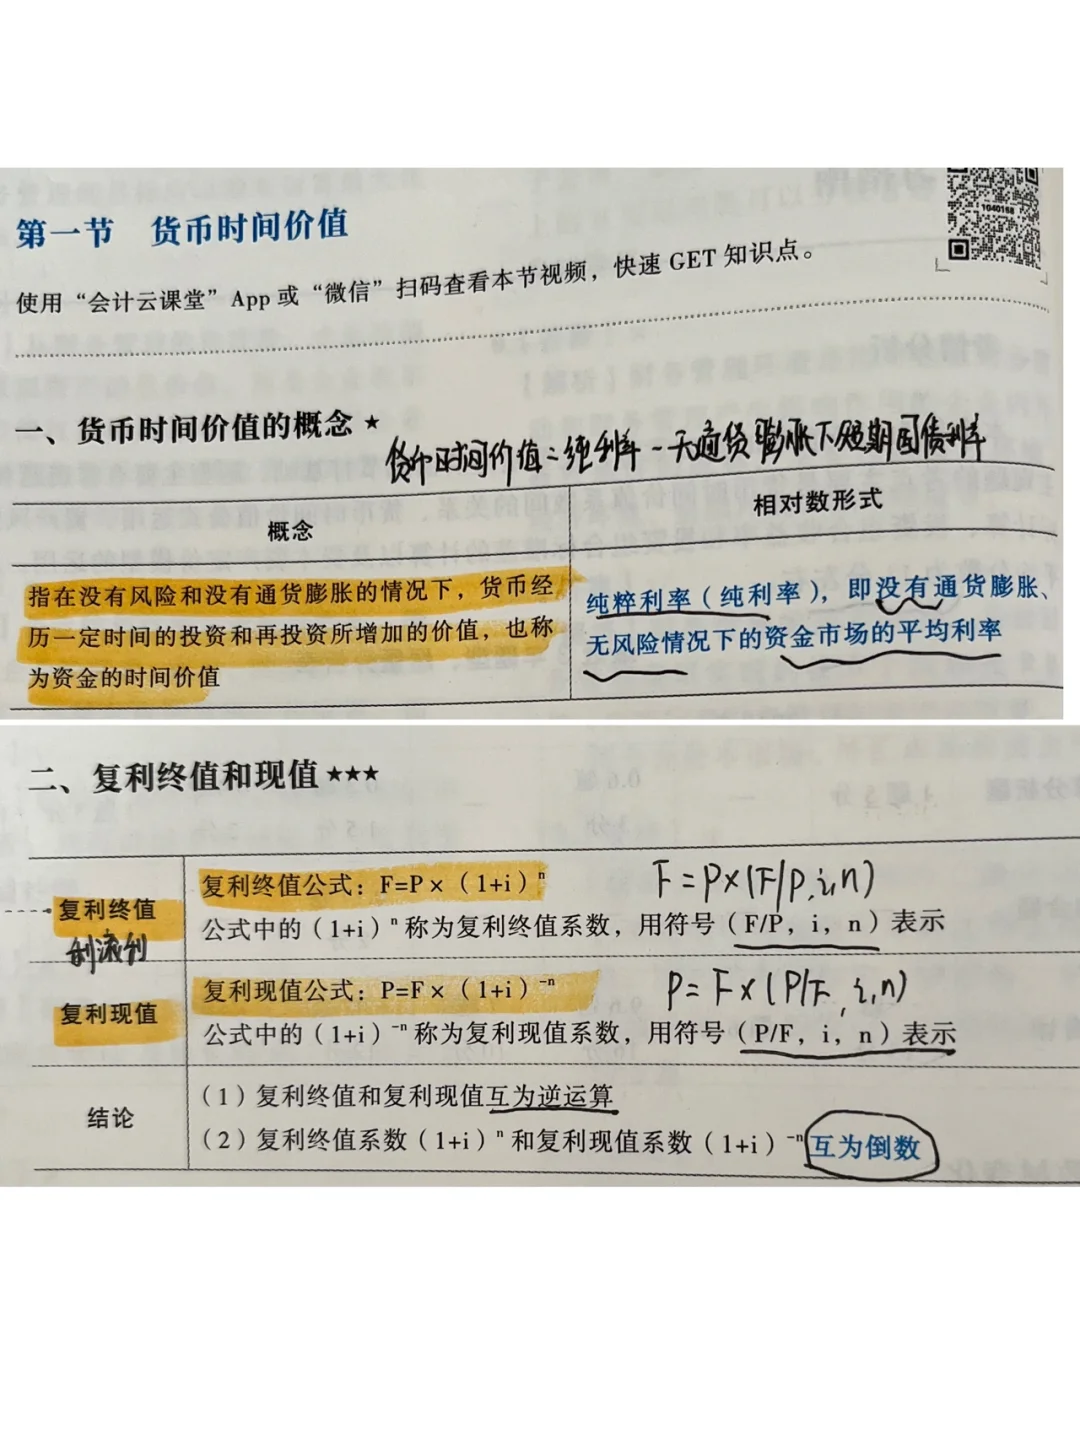 第一节 货币时间价值
1040168
使用“会计云课堂”App或“微信”扫码查看本节视频，快速GET知识点。
一、货币时间价值的概念★
货币时间价值=纯利率-无通货膨胀下短期国债利率
概念
相对数形式
指在没有风险和没有通货膨胀的情况下，货币经
历一定时间的投资和再投资所增加的价值，也称
为资金的时间价值
纯粹利率（纯利率），即没有通货膨胀、
无风险情况下的资金市场的平均利率
二、复利终值和现值★★★
复利终值
利滚利
复利终值公式：F=P×（1+i）ⁿ
F=P×(F/P,i,n)
公式中的（1+i）ⁿ称为复利终值系数，用符号（F/P，i，n）表示
复利现值
复利现值公式：P=F×（1+i）⁻ⁿ
P=F×(P/F,i,n)
公式中的（1+i）⁻ⁿ称为复利现值系数，用符号（P/F，i，n）表示
结论
（1）复利终值和复利现值互为逆运算
（2）复利终值系数（1+i）ⁿ和复利现值系数（1+i）⁻ⁿ互为倒数